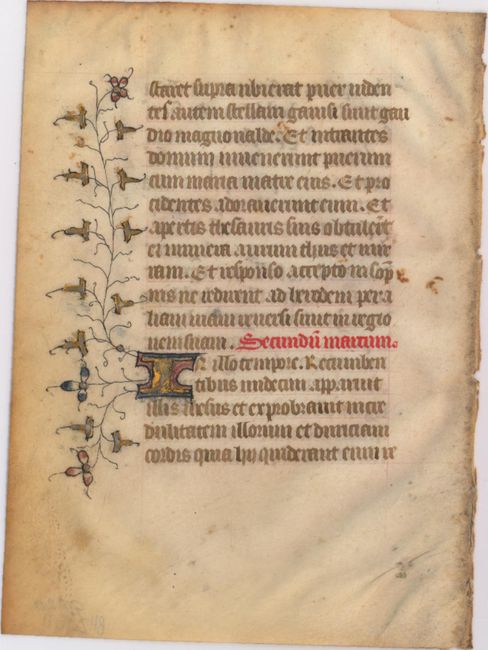 staret supra ubi erat puer viden
tes autem stellam gavisi sunt gau
dio magno valde. Et intrantes
domum invenerunt puerum
cum maria matre eius. Et pro
cidentes adoraverunt eum. Et
apertis thesauris suis obtulert
ei munera aurum thus et mir
ram. Et responso accepto in sop
nis ne redirent ad herodem per a
liam viam reversi sunt in regio
nem suam. Secundu marcum.
In illo tempore. Recumben
tibus undecim apparuit
illis ihesus et exprobravit incre
dulitatem illorum et duriciam
cordis quia hij qui viderant eum re